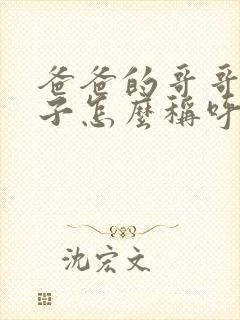 爸爸的哥哥
子怎麼稱呼
沈宏文